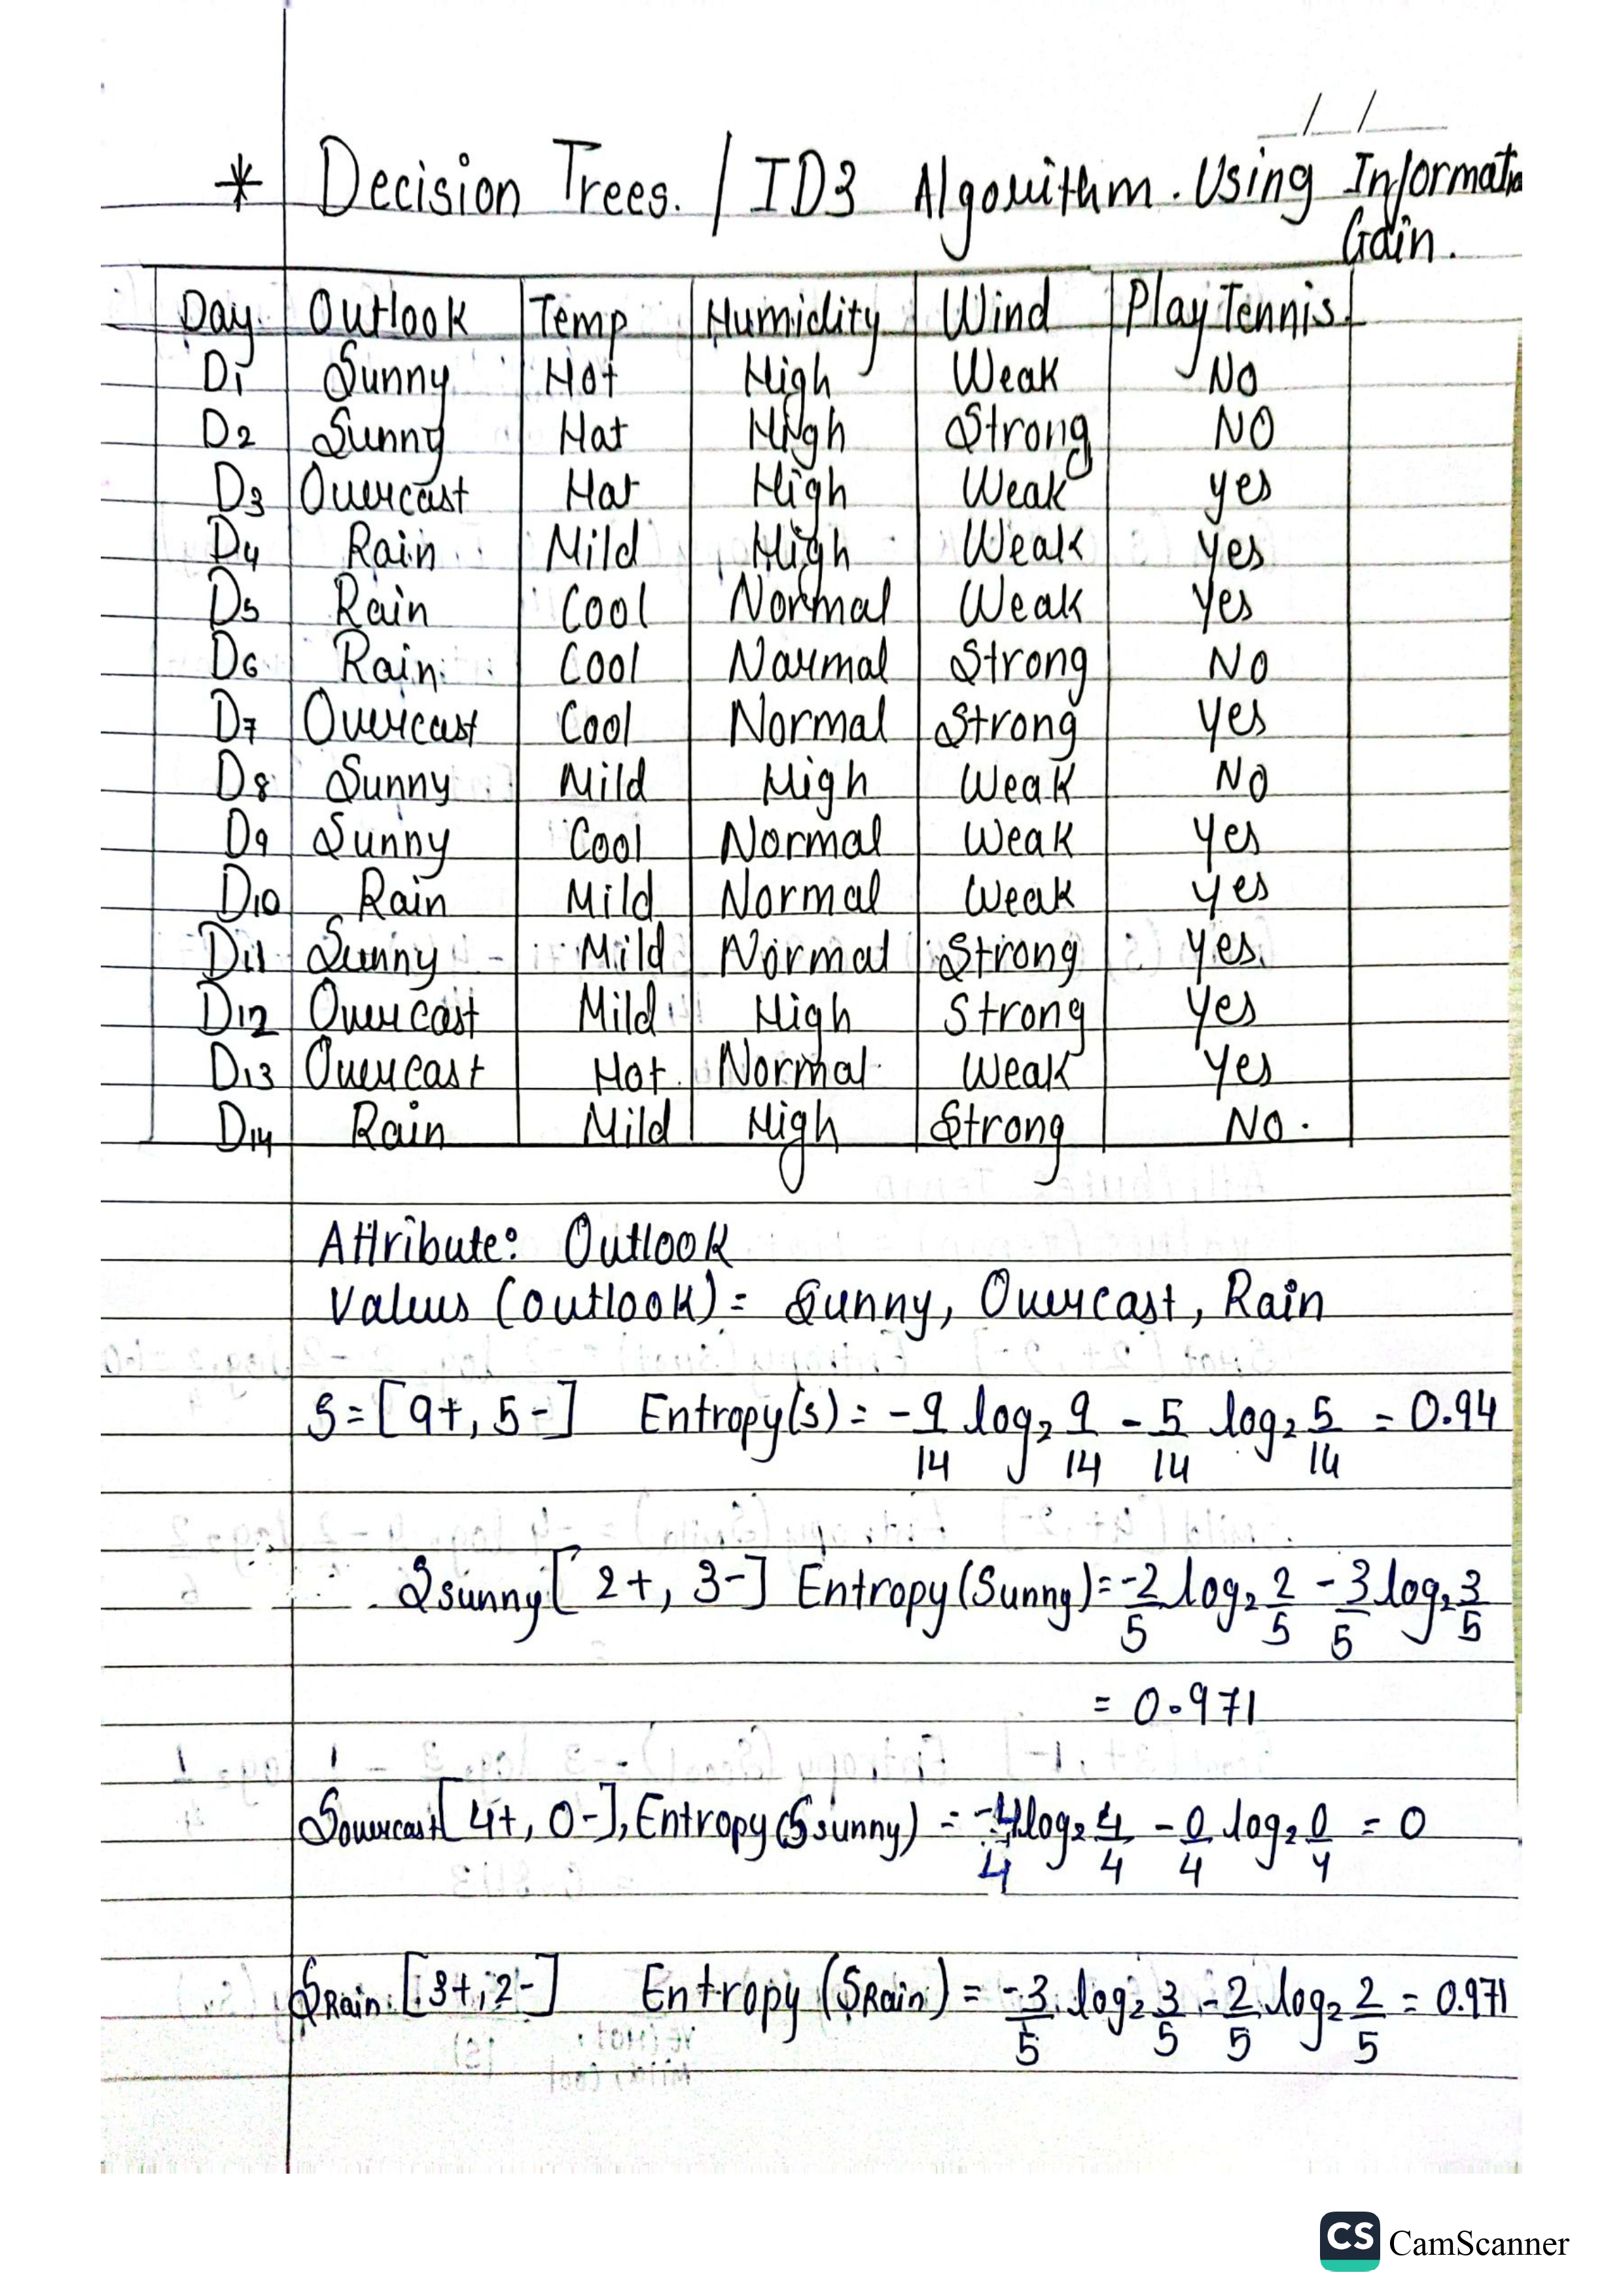 * Decision Trees. / ID3 Algorithm. Using Information
Gain.
Day Outlook Temp Humidity Wind Play Tennis.
D1 Sunny Hot High Weak No
D2 Sunny Hot High Strong NO
D3 Overcast Hot High Weak yes
D4 Rain Mild High Weak yes
D5 Rain Cool Normal Weak yes
D6 Rain Cool Normal Strong No
D7 Overcast Cool Normal Strong yes
D8 Sunny Mild High Weak No
D9 Sunny Cool Normal Weak yes
D10 Rain Mild Normal Weak yes
D11 Sunny Mild Normal Strong yes.
D12 Overcast Mild High Strong yes
D13 Overcast Hot Normal Weak yes
D14 Rain Mild High Strong No.
Attribute: Outlook
Values (outlook) = Sunny, Overcast, Rain
S = [9+, 5-] Entropy(s) = -9/14 log₂ 9/14 - 5/14 log₂ 5/14 = 0.94
Ssunny [2+, 3-] Entropy (Sunny) = -2/5 log₂ 2/5 - 3/5 log₂ 3/5
= 0.971
Sovercast [4+, 0-], Entropy (Ssunny) = -4/4 log₂ 4/4 - 0/4 log₂ 0/4 = 0
SRain [3+, 2-] Entropy (SRain) = -3/5 log₂ 3/5 - 2/5 log₂ 2/5 = 0.971
CS CamScanner